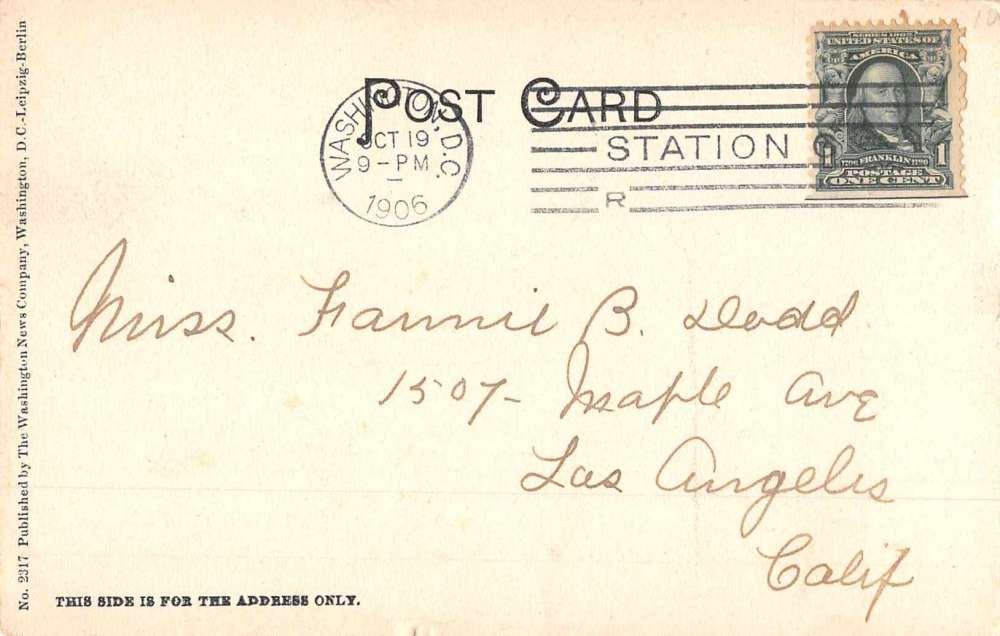 POST CARD
WASHINGTON, D.C.
OCT 19
9-PM
1906
STATION
R
SERIES 1902
UNITED STATES OF
AMERICA
1706 FRANKLIN 1790
1 1
POSTAGE
ONE CENT
Miss. Fannie B. Dodd
1507- Maple Ave
Los Angeles
Calif
THIS SIDE IS FOR THE ADDRESS ONLY.
No. 2317 Published by The Washington News Company, Washington, D.C.-Leipzig-Berlin